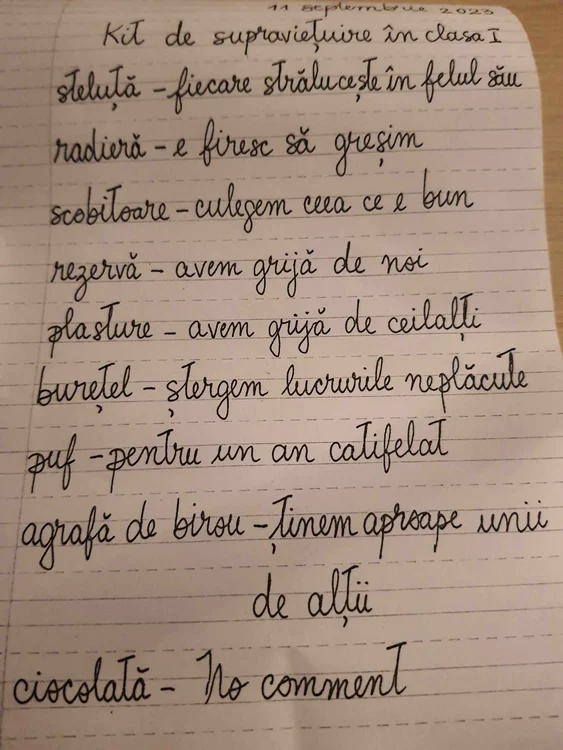 11 septembrie 2023
Kit de supraviețuire în clasa I
steluță - fiecare strălucește în felul său
radieră - e firesc să greșim
scobitoare - culegem ceea ce e bun
rezervă - avem grijă de noi
plasture - avem grijă de ceilalți
burețel - ștergem lucrurile neplăcute
puf - pentru un an catifelat
agrafă de birou - ținem aproape unii
de alții
ciocolată - No comment